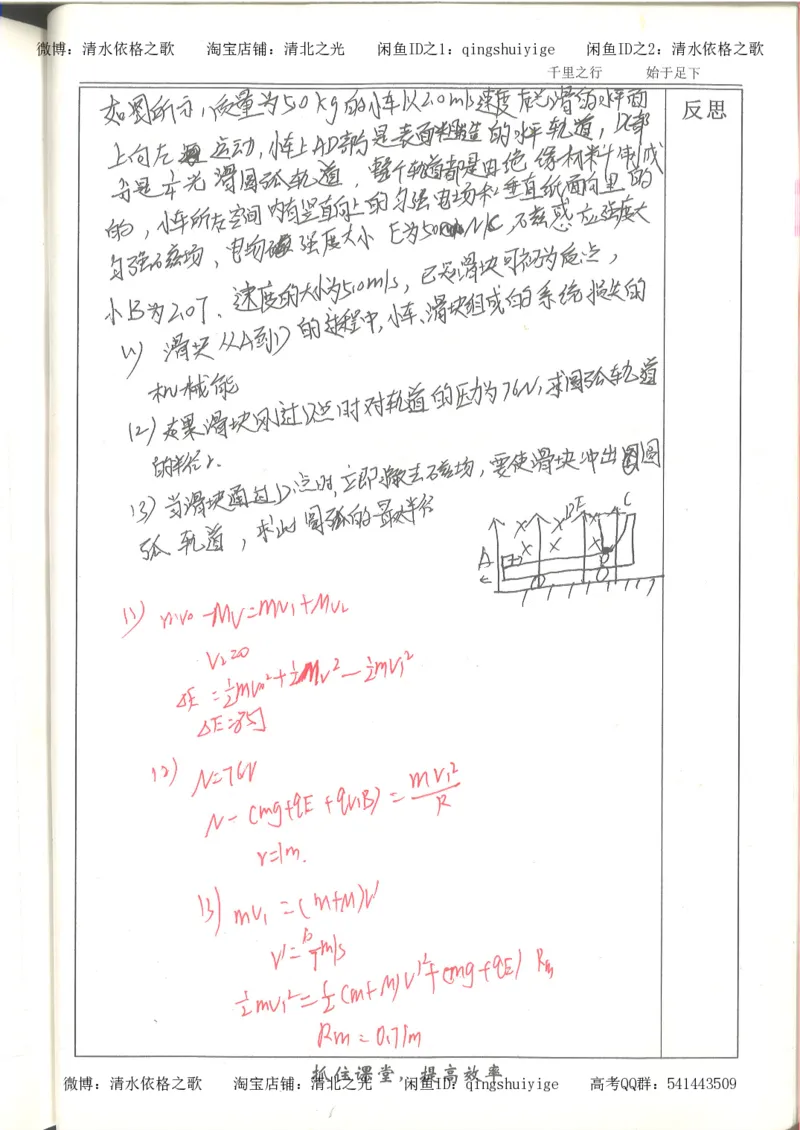 微博：清水依格之歌 淘宝店铺：清北之光 闲鱼ID之1：qingshuiyige 闲鱼ID之2：清水依格之歌
千里之行 始于足下
反思
如图所示，质量为5.0kg的小车以2.0m/s速度在光滑的水平面
上向左运动，小车上AD部分是表面粗糙的水平轨道，DC部
分是1/4光滑圆弧轨道，整个轨道都是由绝缘材料制成
的，小车所在空间内有竖直向上的匀强电场和垂直纸面向里的
匀强磁场，电场强度大小E为50N/C，磁感应强度大
小B为2.0T.速度的大小为5.0m/s，已知滑块可视为质点，
(1) 滑块从A到D的过程中，小车、滑块组成的系统损失的
机械能
(2)如果滑块刚过D点时对轨道的压力为76N，求圆弧轨道
的半径r.
(3)当滑块通过D点时，立即撤去磁场，要使滑块冲出圆
弧轨道，求此圆弧的最大半径
A
E
C
D
(1) mv0-MV=mv1+Mv2
V2=0
ΔE=½mv0²+½Mv²-½mv1²
ΔE=85J
(2) N=76N
N-(mg+qE+qv1B)=mv1²/R
r=1m.
(3) mv1=(m+M)V'
V'=10/7m/s
½mv1²=½(m+M)V'²+(mg+qE)Rm
Rm=0.71m
抓住课堂，提高效率
微博：清水依格之歌 淘宝店铺：清北之光 闲鱼ID：qingshuiyige 高考QQ群：541443509